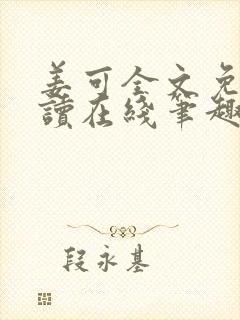 姜可全文免
讀在綫筆趣
段永基